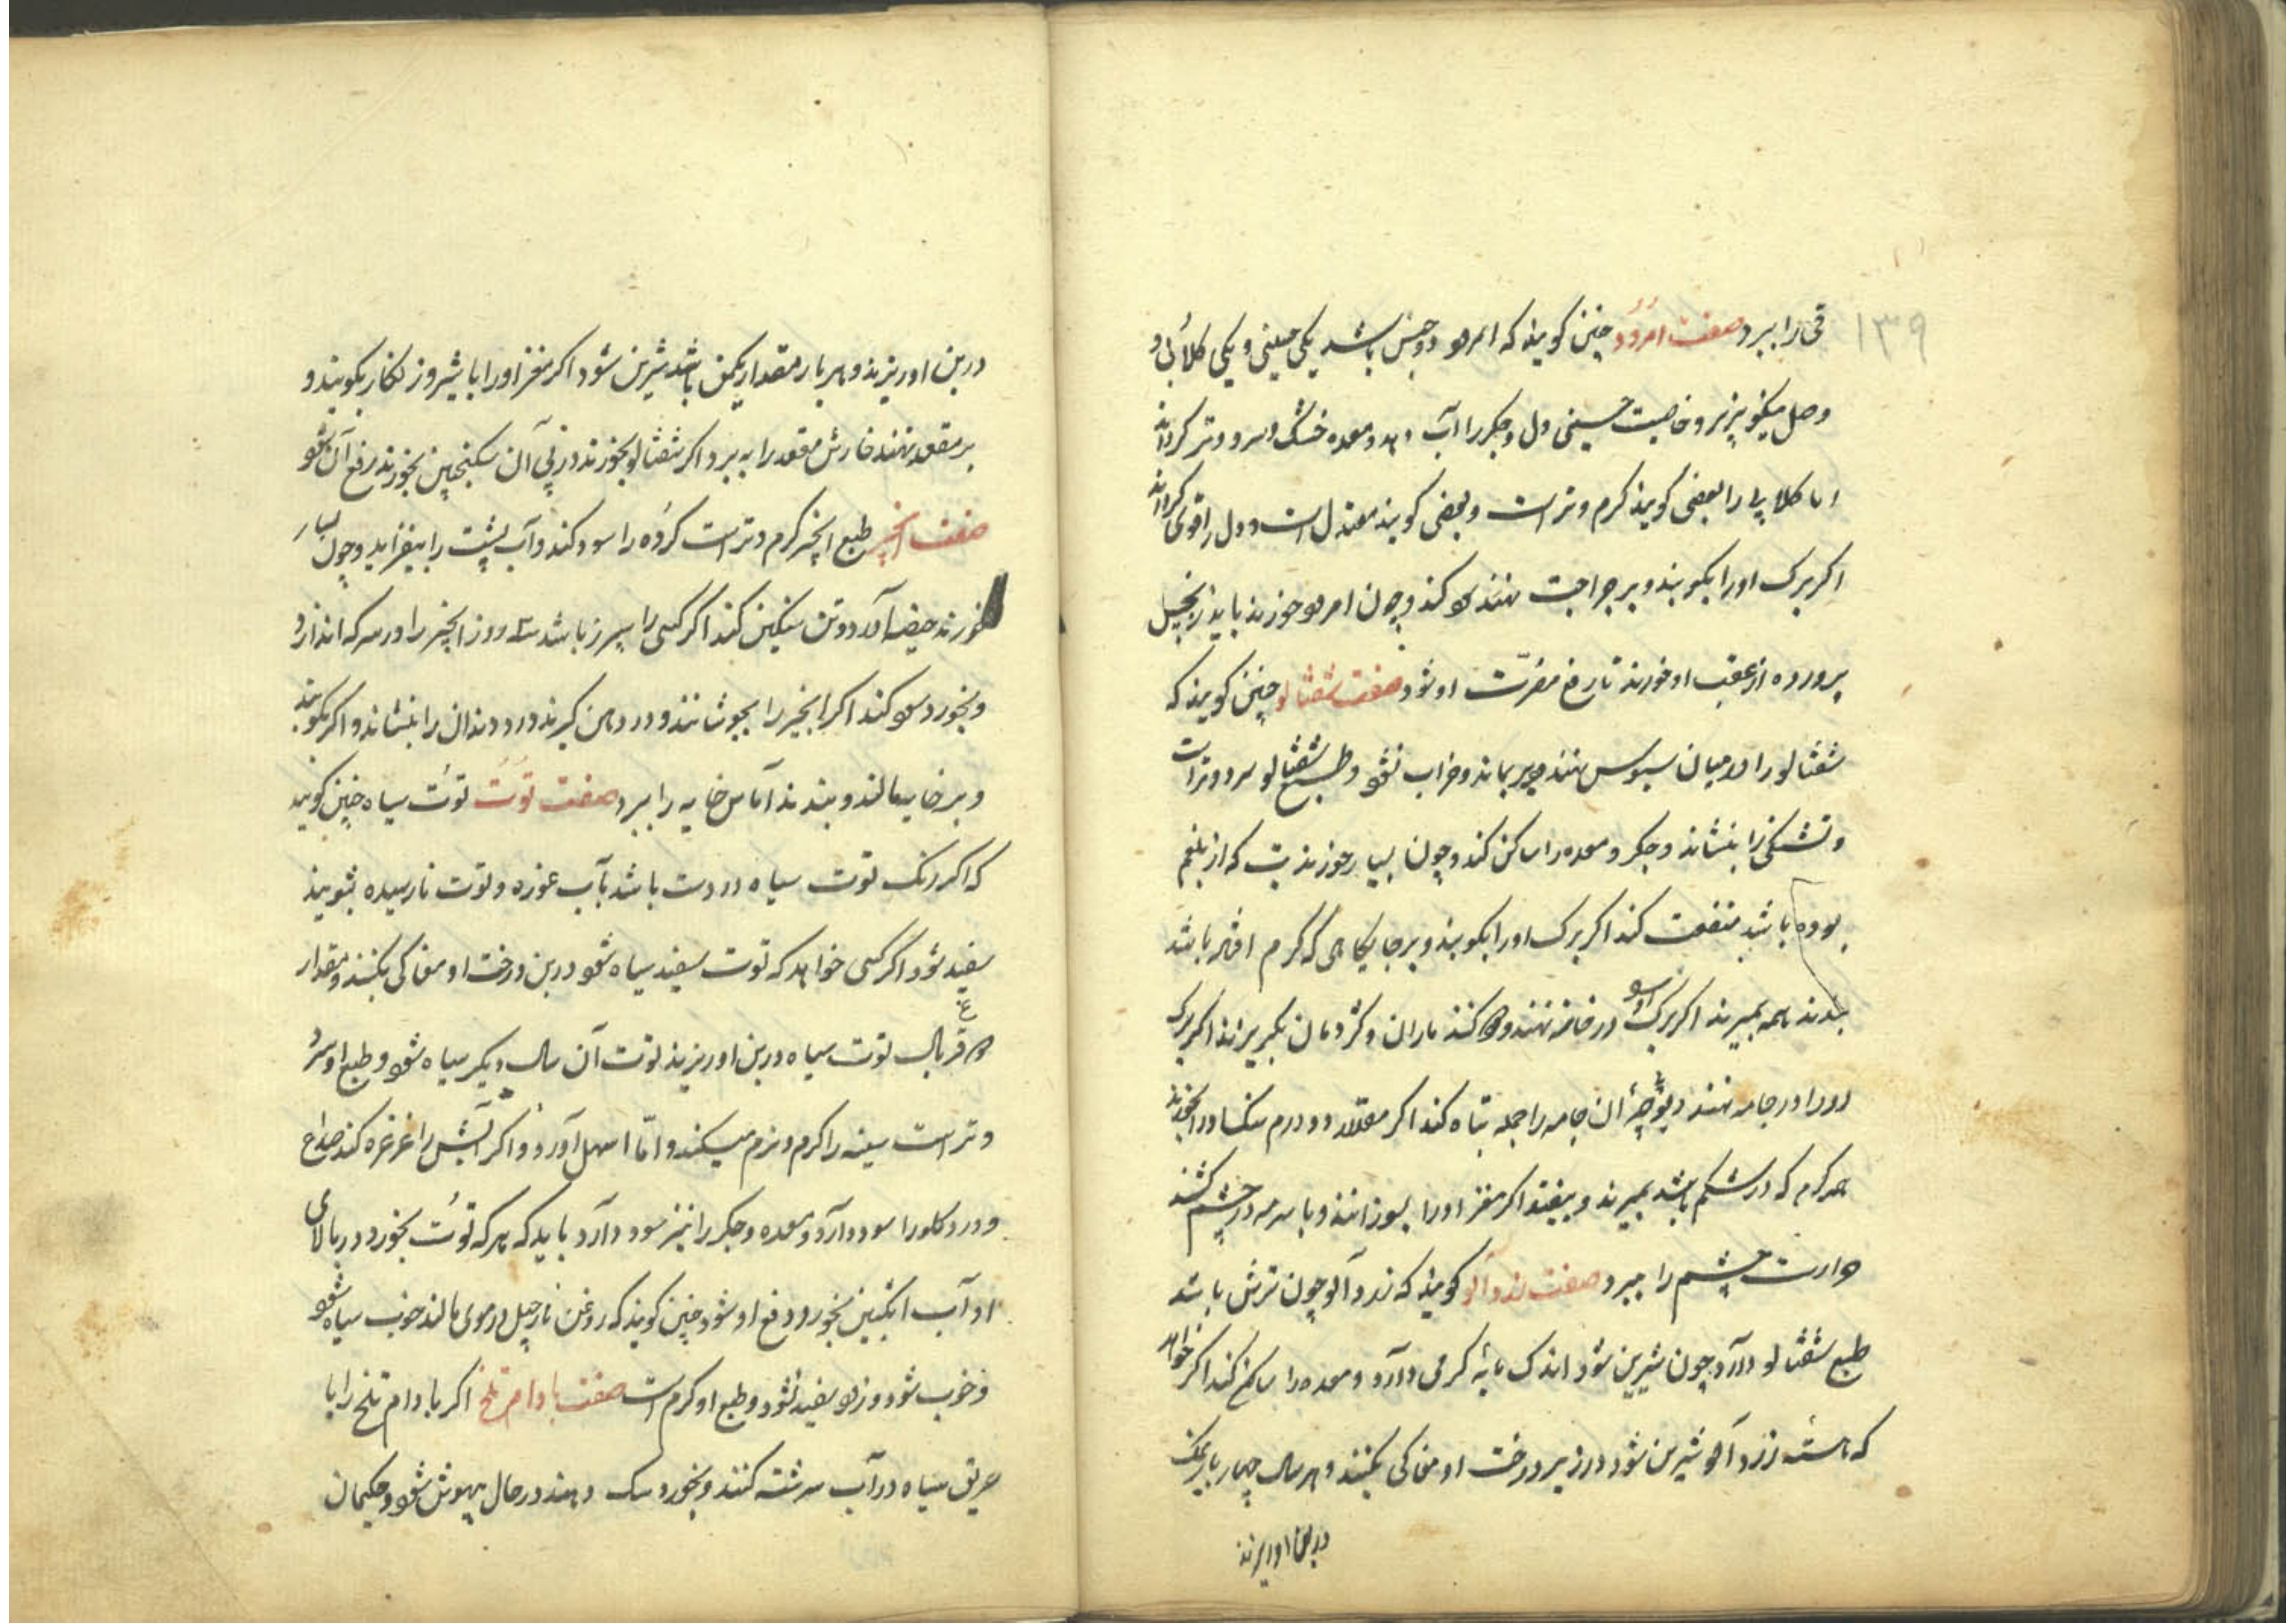 ۱۳۹
قی را ببرد صفت امرود چنین کویند که امرود دو جنس باشد یکی حسینی و یکی کلابی و
وصل نیکو پزیرد و خاصیت حسینی دل و جکر را آب دهد و معده خشک و سرد و تر کرداند
اما کلابی را بعضی کویند کرم و تر است و بعضی کویند معتدل است و دل را قوی کرداند
اکر برک او را بکویند و بر جراحت نهند نکو کند و چون امرود خورند باید زنجبیل
پرورده از عقب او خورند تا رفع مضرّت او شود صفت شفتالو چنین کویند که
شفتالو را در میان سبوس نهند دیر بماند و خراب نشود و طبع شفتالو سرد و تر است
و تشنکی را بنشاند و جکر و معده را ساکن کند و چون بسیار خورند تب که از بلغم
بوده باشد منفعت کند اکر برک او را بکویند و بر جایکاهی که کرم افتاده باشد
بندند همه بمیرند اکر برک او در خانه نهند و دود کنند ماران و کژدمان بکریزند اکر برک
او را در جامه نهند دیوچهٔ آن جامه را جمله تباه کند اکر مقدار دو درم سنک او را بخورند
هر کرم که در شکم باشد بمیرند و بیفتد اکر مغز او را بسوزانند و با سرمه در چشم کشند
حرارت چشم را ببرد صفت زردآلو کویند که زردآلو چون ترش باشد
طبع شفتالو دارد چون شیرین شود اندک مایهٔ کرمی دارد و معده را ساکن کند اکر خواهد
که هسته زردآلو شیرین شود در زیر درخت او مغاکی بکنند و هر سال چهار بار نمک
در بن او ریزند
در بن او ریزند و هر بار مقدار یکمن باشد شیرین شود اکر مغز او را با شیر و زنکار بکویند و
بر مقعد نهند خارش مقعد را به برد اکر شفتالو بخورند در پی آن سکنجبین بخورند رفع آن شود
صفت انجیر طبع انجیر کرم و تر است کرده را سود کند و آب پشت را بیفزاید و چون بسیار
خورند حیضه آورد و تن سنکین کند اکر کسی را سپرز باشد سه روز انجیر را در سرکه اندازد
و بخورد سود کند اکر انجیر را بجوشانند و در دهن کیرند درد دندان را بنشاند و اکر بکویند
و بر خایه مالند و بندند آماس خایه را ببرد صفت توت توت سیاه چنین کویند
که اکر رنک توت سیاه در دست باشد بآب غوره و توت نارسیده بشویند
سفید شود اکر کسی خواهد که توت سفید سیاه شود در بن درخت او مغاکی بکنند و مقدار
ده قربال توت سیاه در بن او ریزند توت آن سال دیکر سیاه شود و طبع او سرد
و تر است سینه را کرم و نرم میکند و امّا اسهل آورد و اکر آبش را غرغره کند صداع
و درد کلو را سود دارد و معده و جکر را نیز سود دارد باید که هر که توت بخورد در بالای
او آب انکبین بخورد دفع او شود چنین کویند که روغن نارجیل در موی مالند خوب سیاه شود
و خوب شود و زود سفید نشود و طبع او کرم است صفت بادام تلخ اکر بادام تلخ را با
خربق سیاه در آب سرشته کنند و بخورد سک دهند در حال بیهوش شود و حکیمان